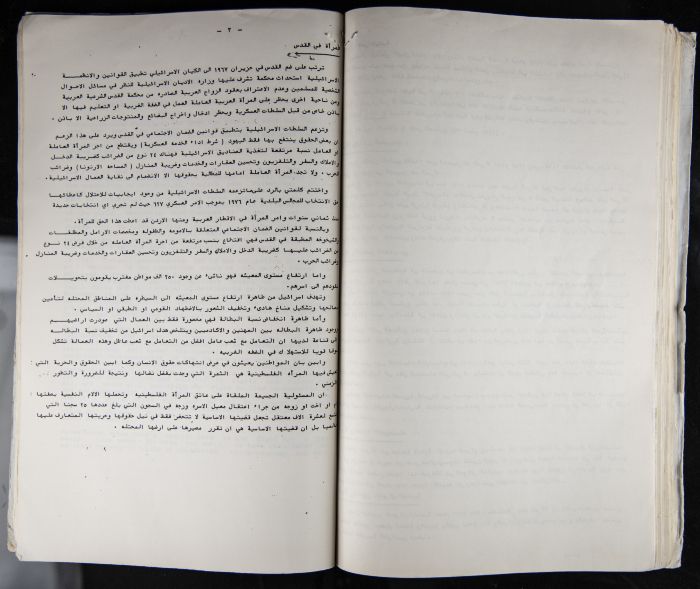 - ٢ -
المرأة في القدس
ترتب على ضم القدس في حزيران ١٩٦٧ الى الكيان الاسرائيلي تطبيق القوانين والانظمة
الاسرائيلية استحداث محكمة تشرف عليها وزارة الاديان الاسرائيلية للنظر في مسائل الاحوال
الشخصية للمسلمين وعدم الاعتراف بعقود الزواج العربية الصادره من محكمة القدس الشرعية العربية
ومن ناحية اخرى يحظر على المرأة العربية العاملة العمل في الضفة الغربية او التعليم فيها الا
باذن خاص من قبل السلطات العسكرية ويحظر ادخال واخراج البضائع والمنتوجات الزراعية الا باذن .
وتزعم السلطات الاسرائيلية بتطبيق قوانين الضمان الاجتماعي في القدس ويرد على هذا الزعم
ان بعض الحقوق ينتفع بها فقط اليهود ( شرط اداء الخدمة العسكرية ) ويقتطع من اجر المرأة العاملة
او العامل نسبة مرتفعة لتغذية الصناديق الاسرائيلية فهناك ٢٤ نوع من الضرائب كضريبة الدخل
والاملاك والسفر والتلفزيون وتحسين العقارات والخدمات وضريبة المنازل ( المساحه الارنونا) وضرائب
الحرب . ولا تجد المرأة العاملة امامها للمطالبة بحقوقها الا الانضمام الى نقابة العمال الاسرائيلية .
واختتم كلمتي بالرد على ماتزعمه السلطات الاسرائيلية من وجود ايجابيات للاحتلال كاعطائها
حق الانتخاب للمجالس البلدية عام ١٩٧٦ بموجب الامر العسكري ٦٢٧ حيث لم تجري اي انتخابات جديدة
منذ ثماني سنوات وامر المرأة في الاقطار العربية ومنها الاردن قد اعطت هذا الحق للمرأة .
وبالنسبة لقوانين الضمان الاجتماعي المتعلقة بالامومه والطفوله ومخصصات الارامل والمطلقات
والشيخوخة المطبقة في القدس فهي اقتطاع بنسب مرتفعة من اجرة المرأة العامله من خلال فرض ٢٤ نوع
من الضرائب عليها كضريبة الدخل والاملاك والسفر والتلفزيون وتحسين العقارات والخدمات وضريبة المنازل
وضرائب الحرب .
واما ارتفاع مستوى المعيشه فهو ناتىء عن وجود ٢٥٠ الف مواطن مغترب يقومون بتحويلات
نقودهم الى اسرهم .
وتهدف اسرائيل من ظاهرة ارتفاع مستوى المعيشه الى السيطره على المناطق المحتله لتأمين
مصالحها وتشكيل مناخ هادىء وتخفيف الشعور بالاضطهاد القومي او الطبقي او السياسي .
وأما ظاهرة انخفاض نسبة البطالة فهي محصورة فقط بين العمال التي صودرت اراضيهم
ووجود ظاهرة البطاله بين المهنين والاكادميين ويتلخص هدف اسرائيل من تخفيف نسبة البطاله
في قناعة لديها ان التعامل مع شعب عامل افضل من التعامل مع شعب عاطل وهذه العمالة تشكل
سوقا قويا للاستهلاك في الضفه الغربيه .
وابين بان المواطنين يعيشون في عرض انتهاكات حقوق الانسان وكما ابين الحقوق والحرية التي
تعيش فيها المرأه الفلسطينية هي الثمرة التي وجدت بفضل نضالها ونتيجة للضرورة والتطور
الزمني .
ان المسئولية الجسيمة الملقاة على عاتق المرأة الفلسطينيه وتحملها الالام النفسية بصفتها
ام او اخت او زوجة من جراء اعتقال معيل الاسره وزجه في السجون التي بلغ عددها ٢٥ سجنا التي
تتسع لعشرة الاف معتقل تجعل قضيتها الاساسية لا تنحصر فقط في نيل حقوقها وحريتها المتعارف عليها
عالميا بل ان قضيتها الاساسية هي ان تقرر مصيرها على ارضها المحتله .